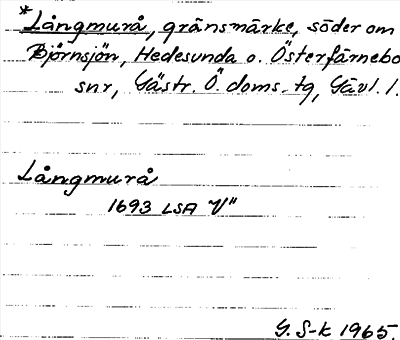 *Långmurå, gränsmärke, söder om
Björnsjön, Hedesunda o. Österfärnebo
snr, Gästr. Ö. doms.-tg, Gävl. l.
Långmurå
1693 LSA V"
G. S-k 1965.